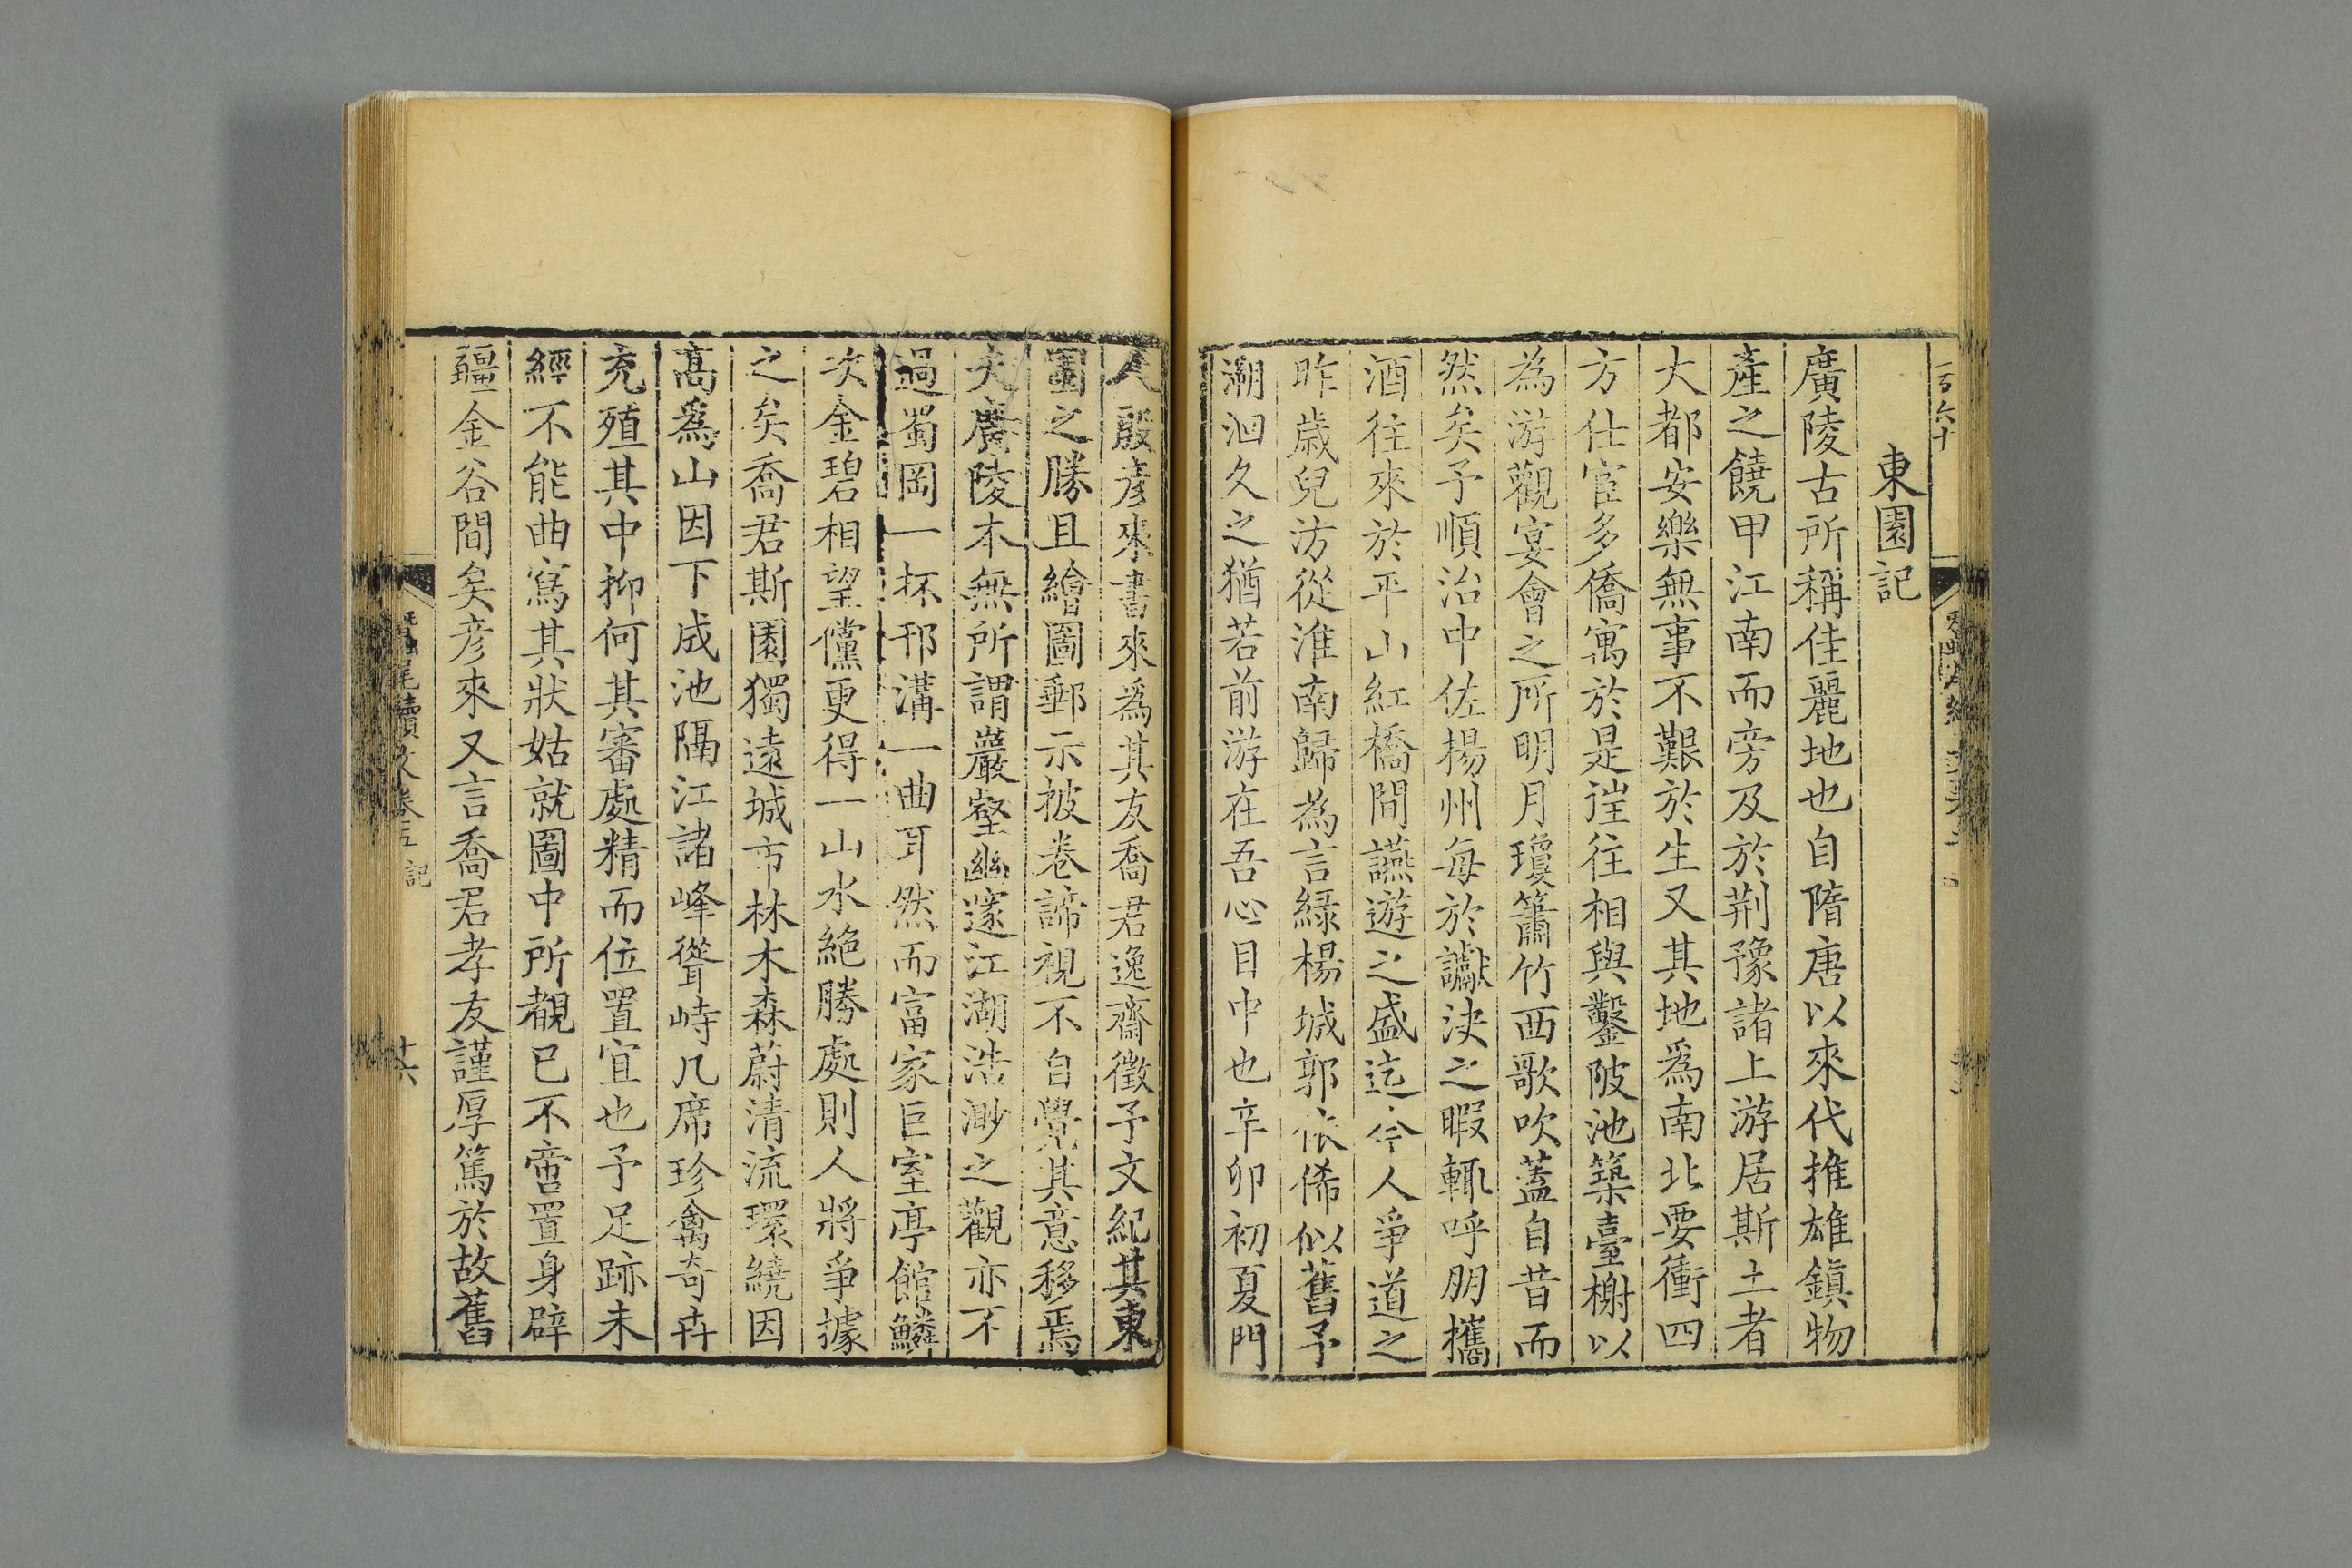 東園記
廣陵古所稱佳麗地也自隋唐以來代推雄鎮物
產之饒甲江南而旁及於荆豫諸上游居斯土者
大都安樂無事不艱於生又其地爲南北要衝四
方仕宦多僑寓於是徃往相與鑿陂池築臺榭以
為游觀宴會之所明月瓊簫竹西歌吹蓋自昔而
然矣予順治中佐揚州每於讞決之暇輒呼朋攜
酒往來於平山紅橋間讌遊之盛迄今人爭道之
昨歲兒汸從淮南歸為言緑楊城郭依俙似舊予
溯洄久之猶若前游在吾心目中也辛卯初夏門
人殷彦來書來爲其友喬君逸齋徵予文紀其東
園之勝且繪圖郵示披卷諦視不自覺其意移焉
夫廣陵本無所謂巖壑幽邃江湖浩渺之觀亦不
過蜀岡一抔邗溝一曲耳然而富家巨室亭館鱗
次金碧相望儻更得一山水絶勝處則人將爭據
之矣喬君斯園獨遠城市林木森蔚清流環繞因
髙爲山因下成池隔江諸峰聳峙几席珍禽奇卉
充殖其中抑何其審處精而位置宜也予足跡未
經不能曲寫其狀姑就圖中所覩已不啻置身辟
疆金谷間矣彦來又言喬君孝友謹厚篤於故舊
蠶尾續文卷五 記
廿六